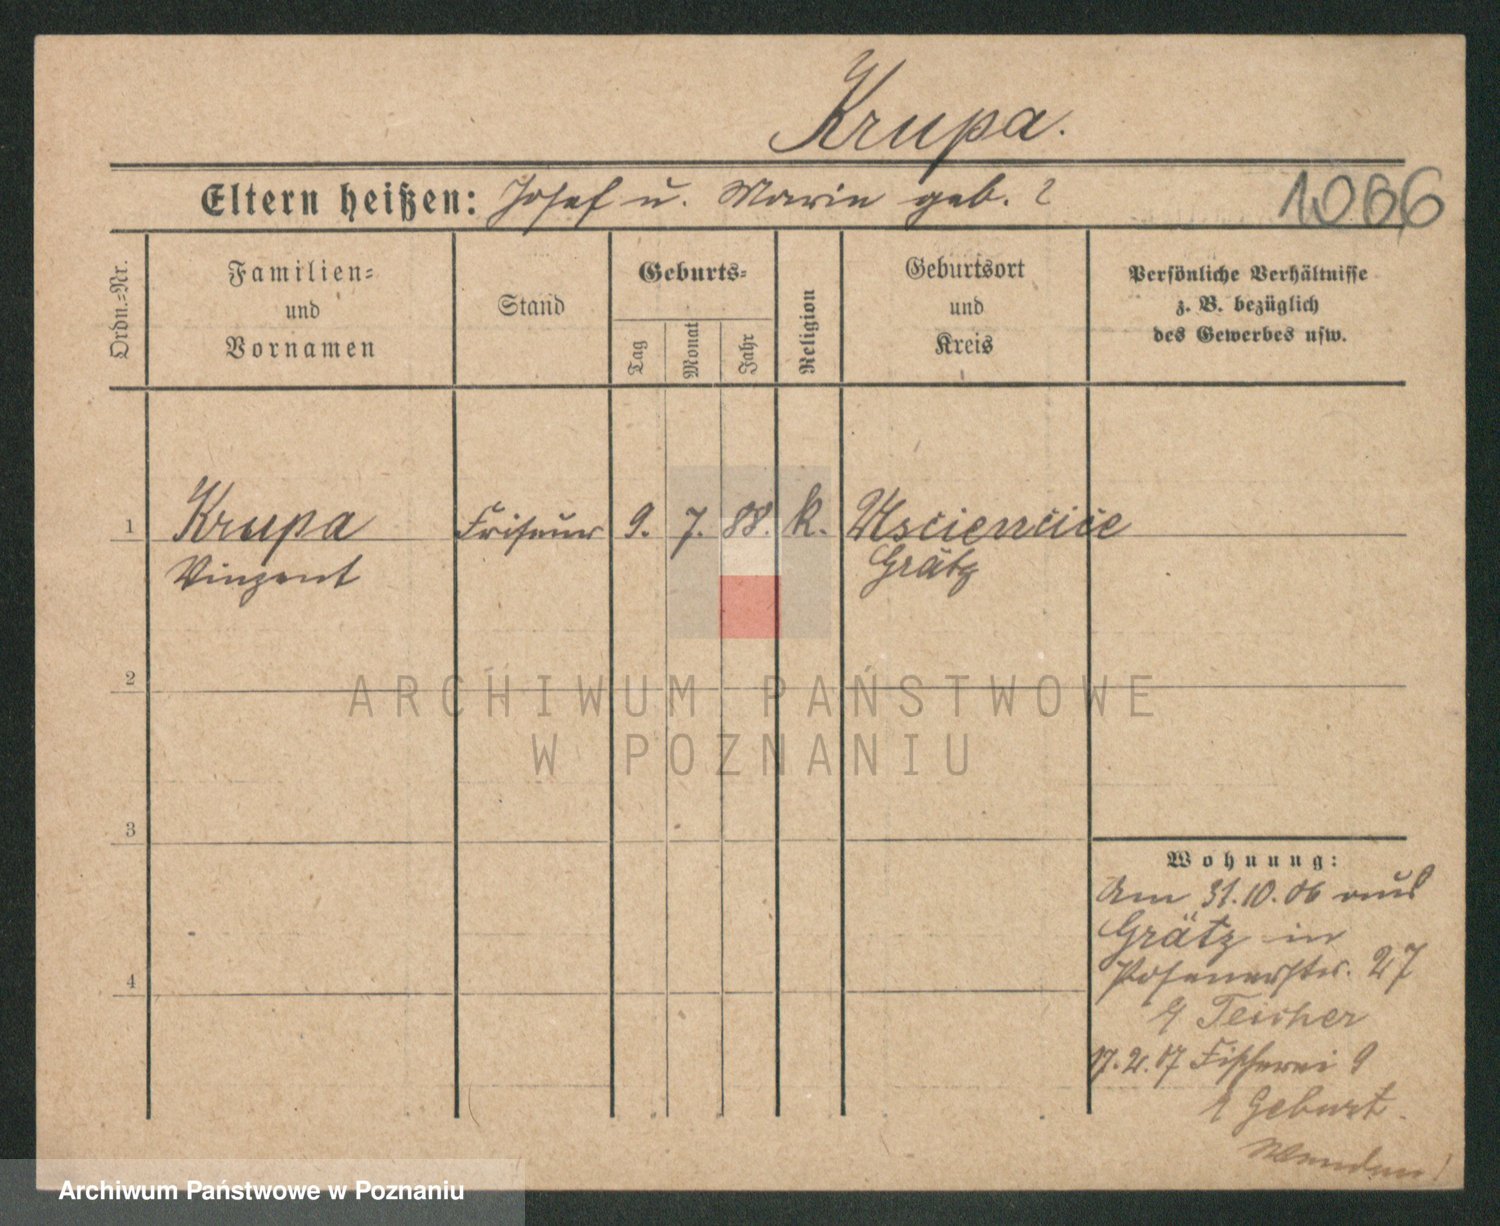 Krupa.
Eltern heißen: Josef u. Marie geb. ?
1066
Ordn.=Nr.
Familien=
und
Vornamen
Stand
Geburts=
Tag
Monat
Jahr
Religion
Geburtsort
und
Kreis
Persönliche Verhältnisse
z. B. bezüglich
des Gewerbes usw.
1
Krupa
Vinzent
Friseur
9. 7. 88. k.
Usciencice
Grätz
2
ARCHIWUM PAŃSTWOWE
W POZNANIU
3
4
Wohnung:
Am 31.10.06 aus
Grätz in
Posenerstr. 27
Teicher
17.2.07 Fischerei 9
Geburt.
Wenden!
Archiwum Państwowe w Poznaniu